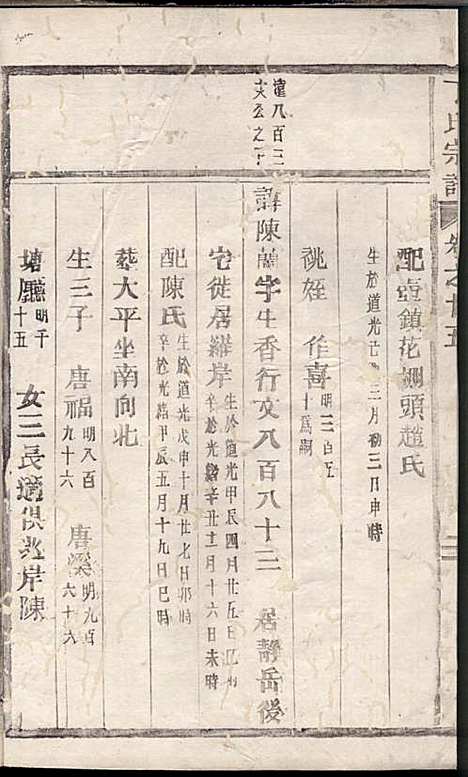 氏宗譜 卷之廿五
配壺鎮花園頭趙氏
生於道光 三月初三日申時
祧姪 作喜 明三百五十為嗣
達八百三
夫公之子
諱陳蘭字生香行文八百八十三 居靜岳後
宅徙居羅岸 生於道光甲辰四月廿五日 時 卒於光緒辛丑十二月十六日未時
配陳氏 生於道光戊申十月廿七日卯時 卒於光緒甲辰五月十九日巳時
葬大平坐南向北
生三子 唐福 明八百九十六 唐溪 明九百六十六
塘廳 明千十五 女三長適俱兆岸陳